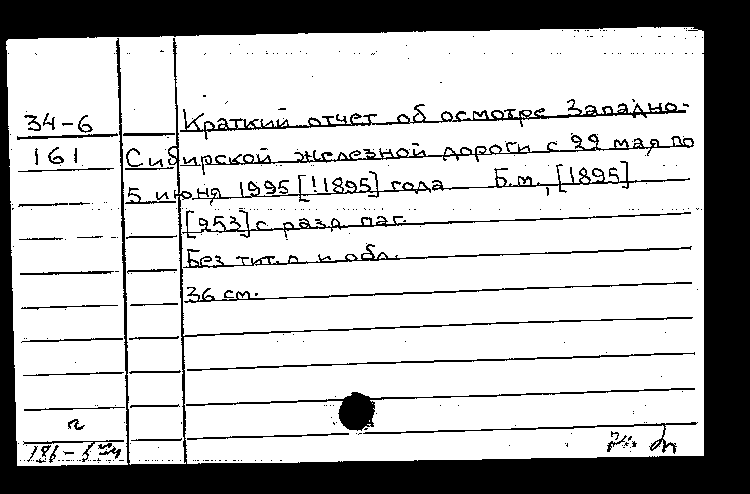 34-6 Краткий отчет об осмотре Западно-
161 Сибирской железной дороги с 22 мая по
5 июня 1995 [!1895] года Б.м., [1895]
[253] с разд. паг.
Без тит. л и обл.
36 см.